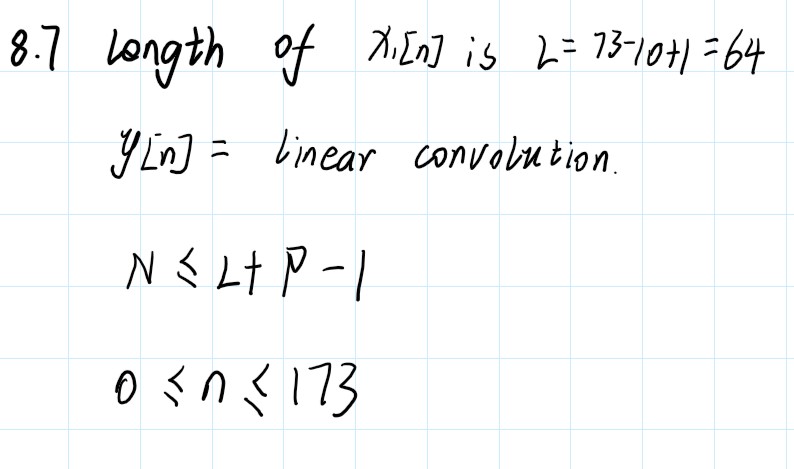 8.7 Length of x₁[n] is L= 73-10+1=64
y[n] = linear convolution.
N ≤ L+ P -1
0 ≤ n ≤ 173